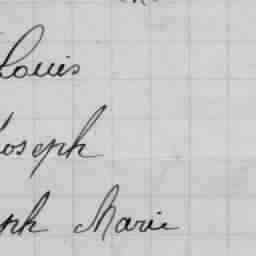 Louis
Joseph
ph Marie